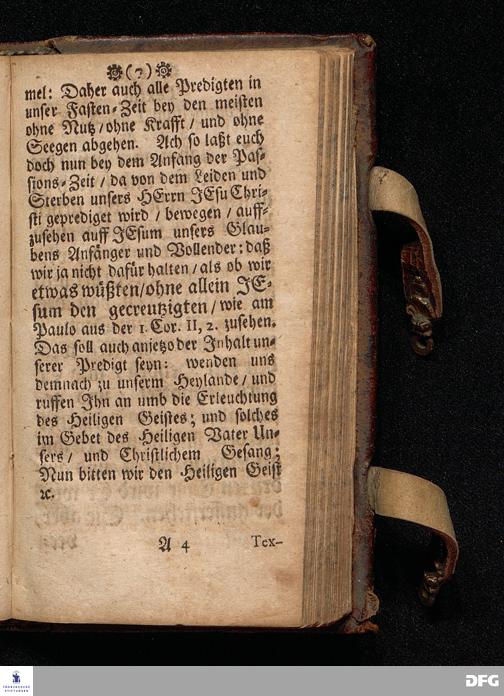 (7)
mel: Daher auch alle Predigten in
unser Fasten-Zeit bey den meisten
ohne Nutz/ohne Krafft/ und ohne
Seegen abgehen. Ach so laßt euch
doch nun bey dem Anfang der Pas-
sions-Zeit/ da von dem Leiden und
Sterben unsers HErrn JEsu Chri-
sti geprediget wird/ bewegen/ auff-
zusehen auff JEsum unsers Glau-
bens Anfänger und Vollender; daß
wir ja nicht dafür halten/ als ob wir
etwas wüßten/ohne allein JE-
sum den gecreutzigten/ wie am
Paulo aus der 1. Cor. II, 2. zusehen.
Das soll auch anjetzo der Inhalt un-
serer Predigt seyn: wenden uns
demnach zu unserm Heylande/ und
ruffen Ihn an umb die Erleuchtung
des Heiligen Geistes; und solches
im Gebet des Heiligen Vater Un-
sers/ und Christlichem Gesang:
Nun bitten wir den Heiligen Geist
ꝛc.
A 4 Tex-
FRANCKESCHE
STIFTUNGEN
DFG